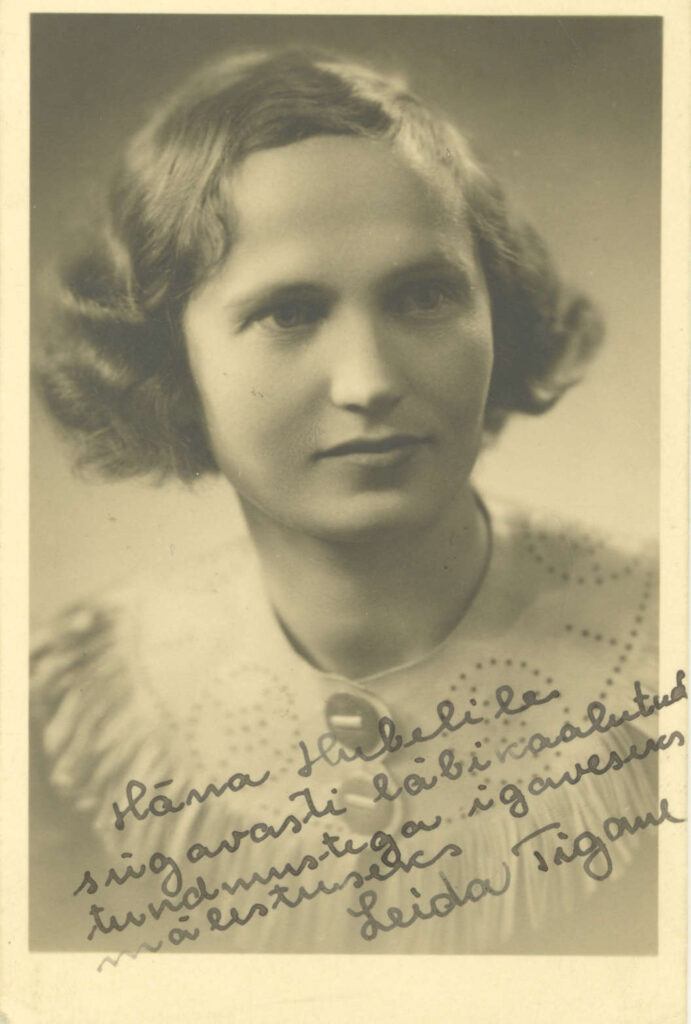 Häna Hubelile
sügavasti läbikaalutud
tundmustega igaveseks
mälestuseks
Leida Tigane